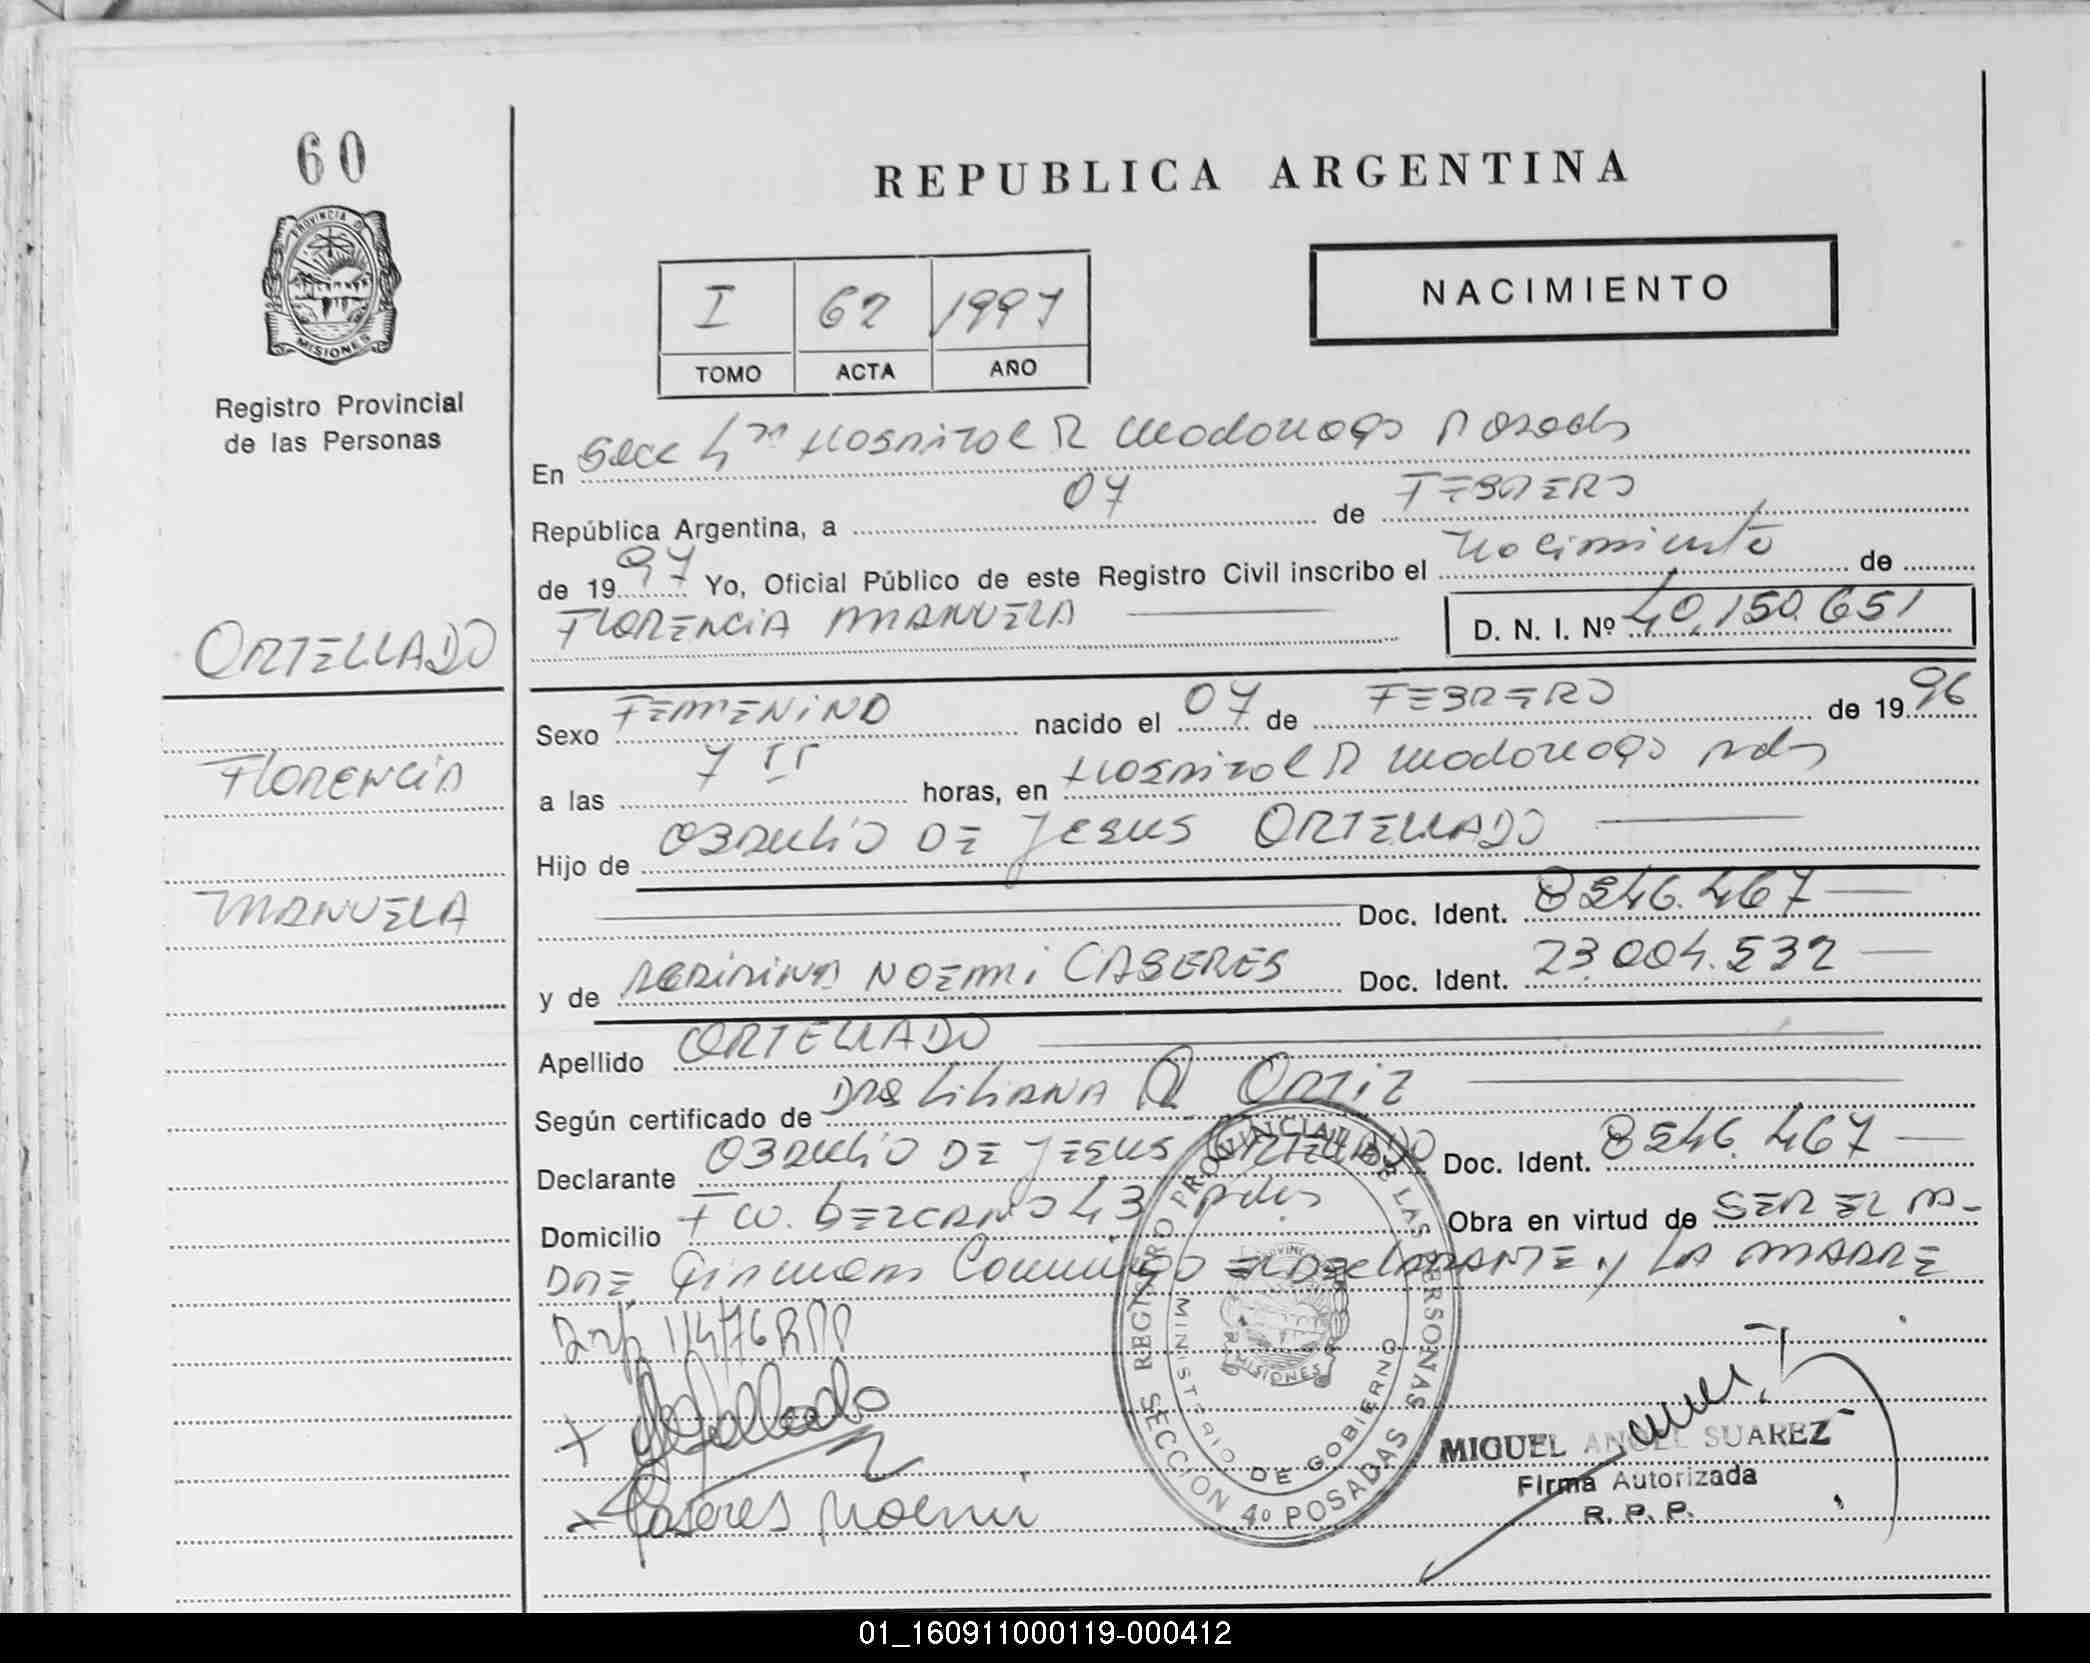 60
PROVINCIA DE
MISIONES
Registro Provincial
de las Personas
REPUBLICA ARGENTINA
NACIMIENTO
I 62 1997
TOMO ACTA AÑO
En Secc 4ta Hospital R Madariaga Posadas
República Argentina, a 07 de FEBRERO
de 1997 Yo, Oficial Público de este Registro Civil inscribo el Nacimiento de
FLORENCIA MANUELA D. N. I. Nº 40.150.651
ORTELLADO
FLORENCIA
MANUELA
Sexo FEMENINO nacido el 07 de FEBRERO de 1996
a las 7 horas, en Hospital R Madariaga Pdas
Hijo de OBDULIO DE JESUS ORTELLADO
Doc. Ident. 8546.467
y de NOEMI CASERES Doc. Ident. 23.004.532
Apellido ORTELLADO
Según certificado de DRA LILIANA R ORTIZ
Declarante OBDULIO DE JESUS ORTELLADO Doc. Ident. 8546.467
Domicilio 43 Pdas Obra en virtud de SER EL PA-
DRE Firman Conmigo EL DECLARANTE y LA MADRE
114/76 RPP
x
x Caseres Noemi
REGISTRO PROVINCIAL DE LAS PERSONAS
SECCION 4º POSADAS
MINISTERIO DE GOBIERNO
MISIONES
MIGUEL ANGEL SUAREZ
Firma Autorizada
R. P. P.
01_160911000119-000412